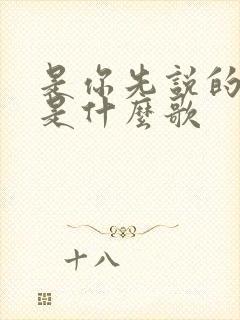 是你先说的
是什麼歌
十八